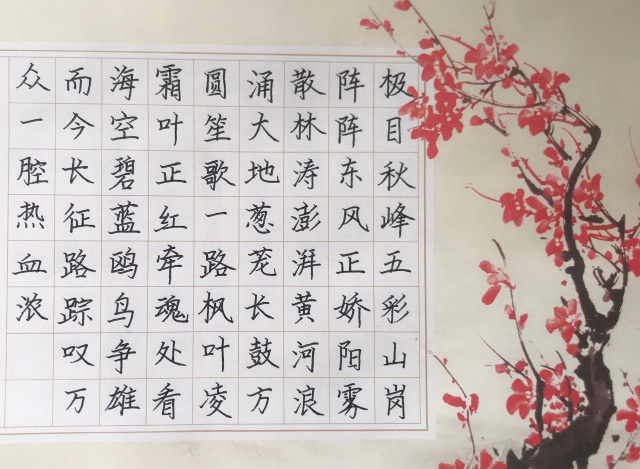 极目秋峰五彩山岗
阵阵东风正娇阳雾
散林涛澎湃黄河浪
涌大地葱茏长鼓方
圆笙歌一路枫叶凌
霜叶正红牵魂处看
海空碧蓝鸥鸟争雄
而今长征路踪叹万
众一腔热血浓